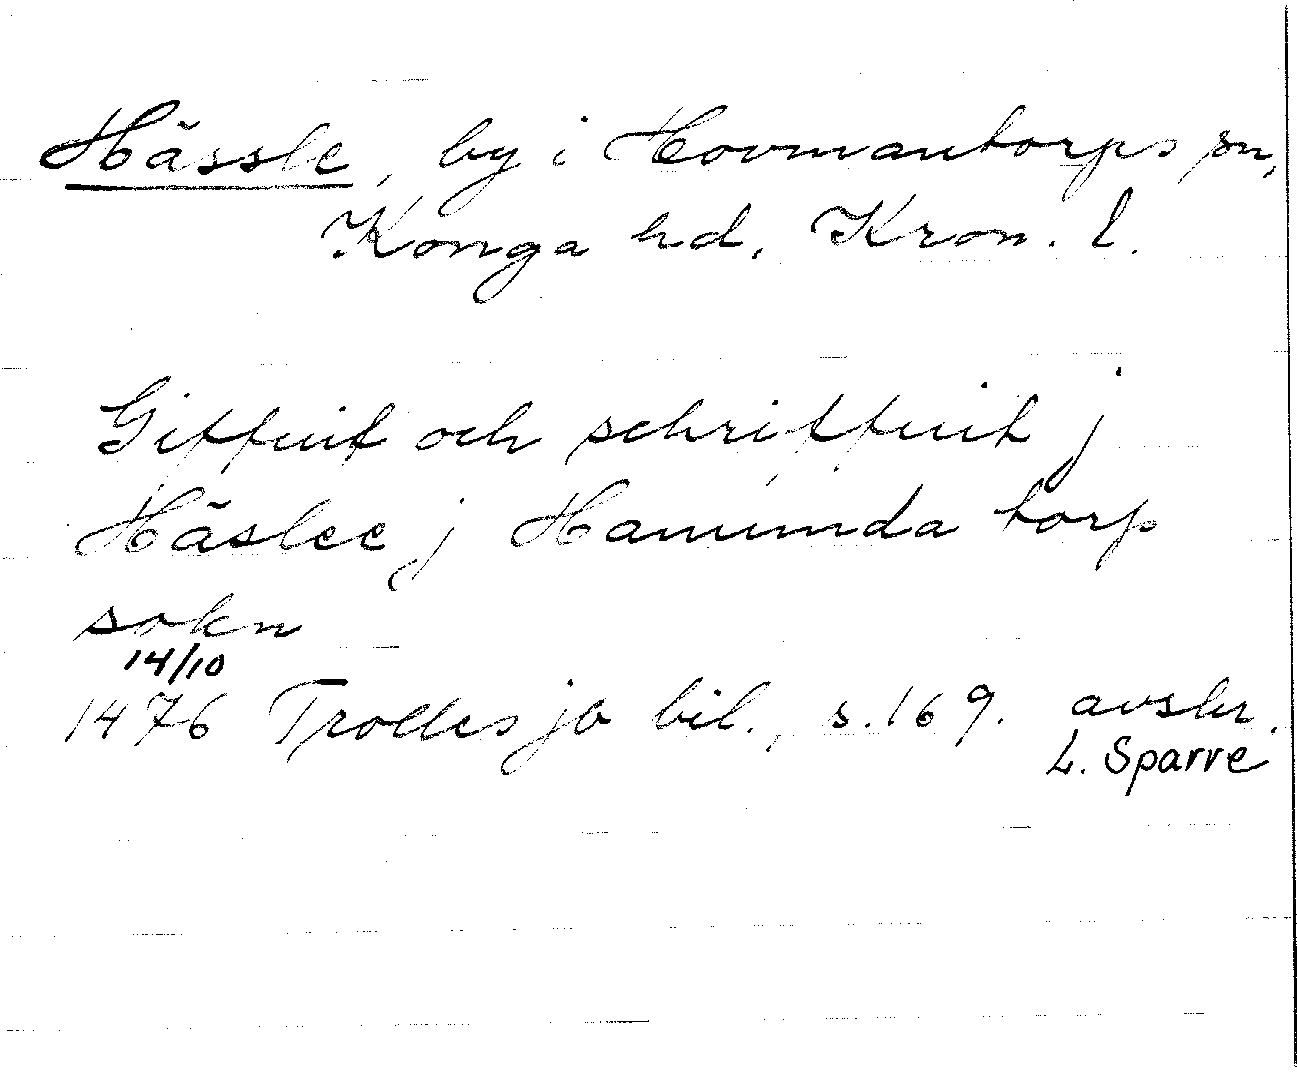 Hässle, by i Hovmantorps sn,
Konga hd, Kron. l.
Giffuit och schriffuit j
Häslee j Hamunda torp
sokn
14/10
1476 Trolles jb bil., s. 169. avskr.
L. Sparre